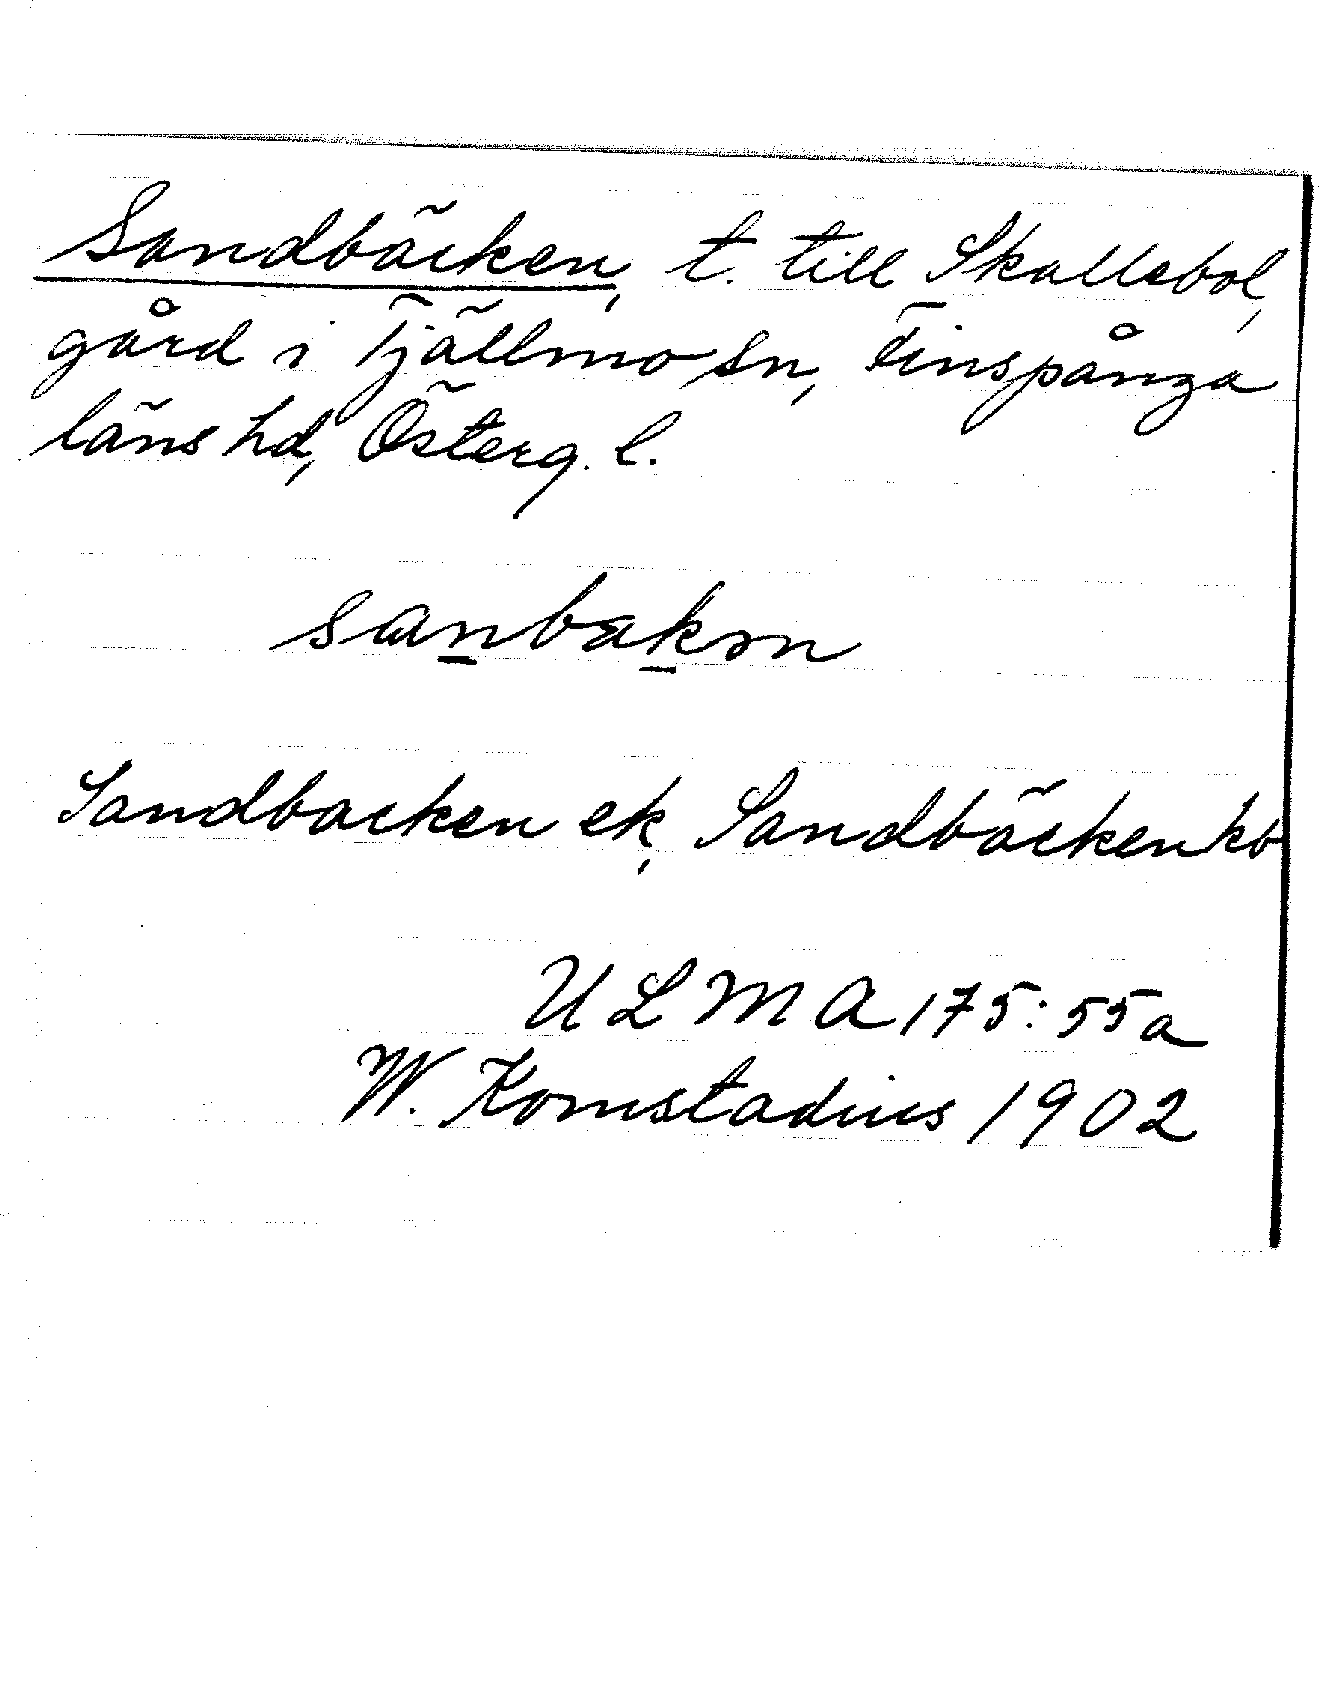 Sandbäcken, t. till Skallebol,
gård i Tjällmo sn, Finspånga
läns hd, Österg. l.
sanbakən
Sandbacken ek, Sandbäcken kb
ULMA 175:55a
W. Komstadius 1902